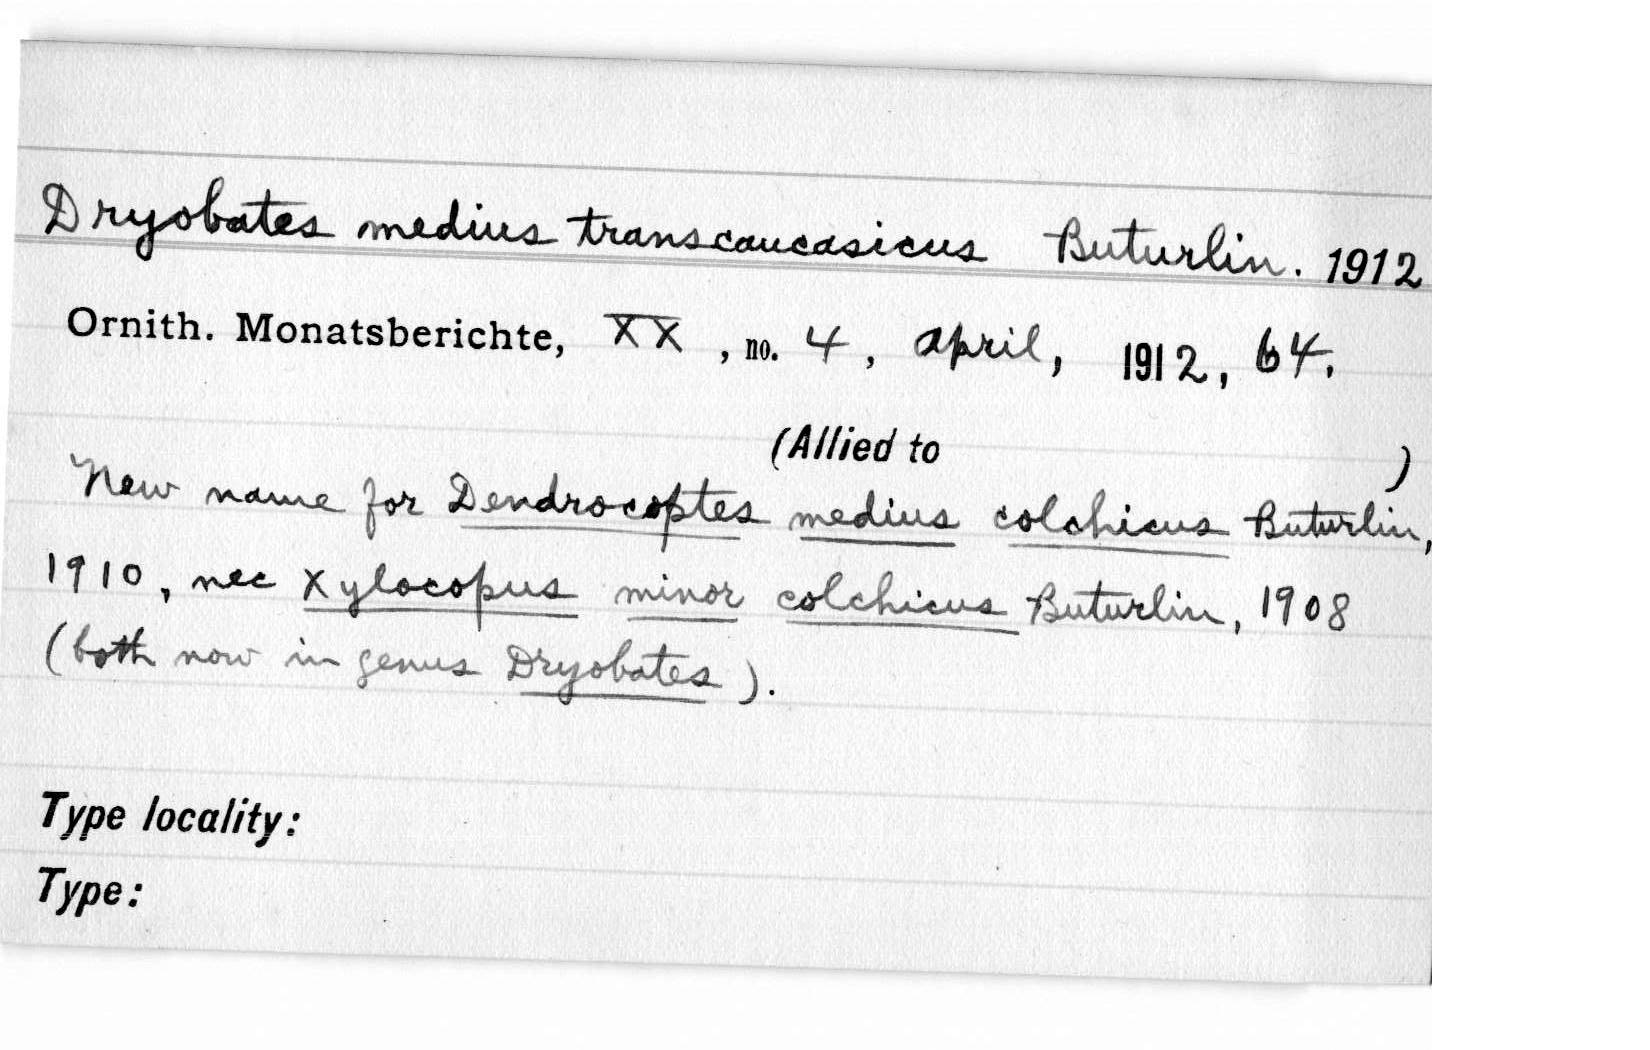 Dryobates medius transcaucasicus Buturlin. 1912
Ornith. Monatsberichte, XX, no. 4, April, 1912, 64.
(Allied to )
New name for Dendrocoptes medius colchicus Buturlin,
1910, nec Xylocopus minor colchicus Buturlin, 1908
(both now in genus Dryobates).
Type locality:
Type: